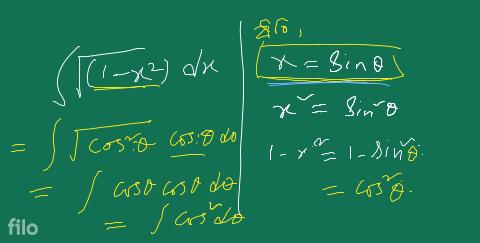 ∫ √(1-x²) dx
= ∫ √cos²θ cosθ dθ
= ∫ cosθ cosθ dθ
= ∫ cos²dθ
ধরি,
x = Sinθ
x² = Sin²θ
1-x² = 1-Sin²θ.
= cos²θ.
filo